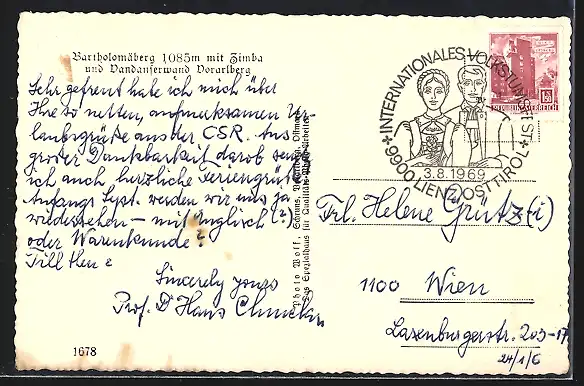 Bartholomäberg 1085m mit Zimba
und Vandanserwand Vorarlberg
Sehr gefreut habe ich mich über
Ihre so netten, aufmerksamen Ur-
laubsgrüße aus der CSR. Aus
großer Dankbarkeit darob sende
ich auch herzliche Feriengrüße
Anfangs Sept. werden wir uns ja
wiedersehen – mit Englisch (?)
oder Warenkunde?
Till then?
Sincerely yours
Prof. Dr Hans
1678
Photo Wolf, Schruns, Vorarlberg, Österr.
Das Spezialhaus für Qualitäts-Photoarbeiten
INTERNATIONALES VOLKSTUMSFEST
3.8.1969
9900 LIENZ OSTTIROL
REPUBLIK ÖSTERREICH
Frl. Helene Grütz(i)
1100 Wien
Laxenburgerstr. 203-17
24/1/6